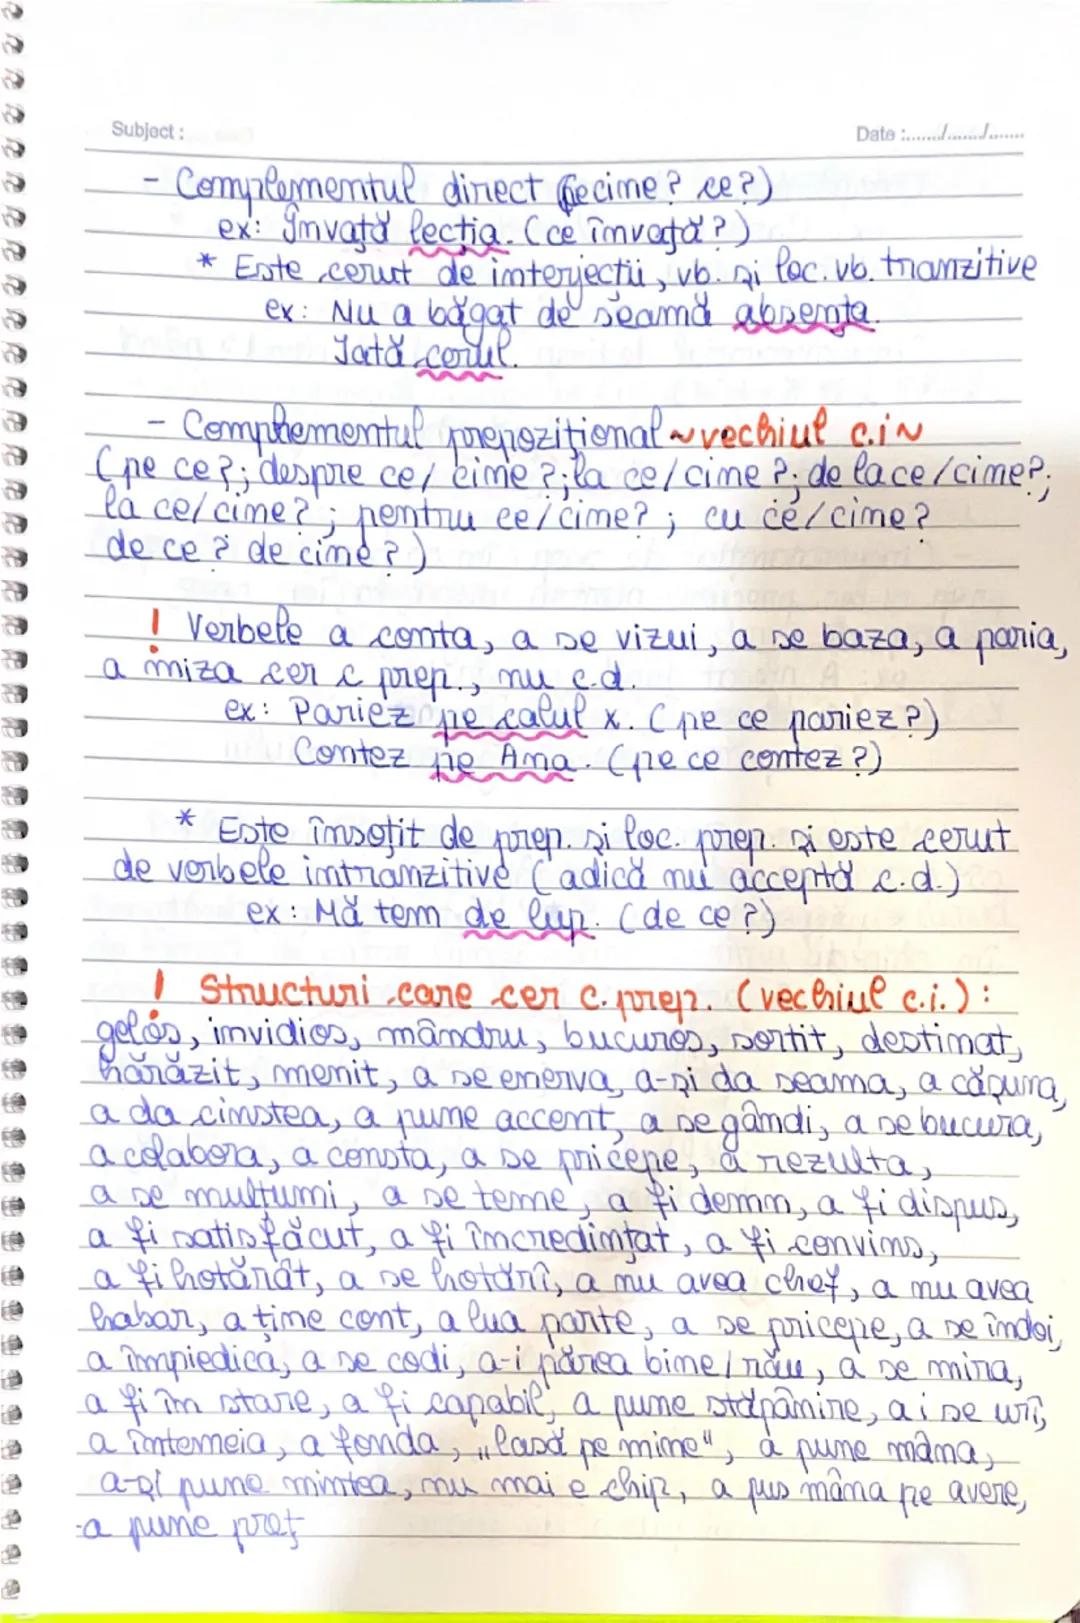 Subject :
Date :......./......./.......
- Complementul direct (pe cine? ce?)
ex: Învață lecția. (ce învață?)
* Este cerut de interjecții, vb. și loc. vb. tranzitive
ex: Nu a băgat de seamă absența.
Iată cerul.
- Complementul prepozițional ~vechiul c.i~
(pe ce?; despre ce/ cine?; la ce/cine?; de la ce/cine?;
la ce/cine?; pentru ce/cine?; cu ce/cine?
de ce? de cine?)
! Verbele a conta, a se vizui, a se baza, a paria,
a miza cer c prep., nu c.d.
ex: Pariez pe calul x. (pe ce pariez?)
Contez pe Ana. (pe ce contez?)
* Este însoțit de prep. și loc. prep. și este cerut
de verbele intranzitive (adică nu acceptă c.d.)
ex: Mă tem de lup. (de ce?)
! Structuri care cer c. prep. (vechiul c.i.):
gelos, invidios, mândru, bucuros, sortit, destinat,
hărăzit, menit, a se enerva, a-și da seama, a căpuna,
a da cinstea, a pune accent, a se gândi, a se bucura,
a colabora, a consta, a se pricepe, a rezulta,
a se mulțumi, a se teme, a fi demn, a fi dispus,
a fi satisfăcut, a fi încredințat, a fi convins,
a fi hotărât, a se hotărî, a nu avea chef, a nu avea
habar, a ține cont, a lua parte, a se pricepe, a se îndoi,
a împiedica, a se codi, a-i părea bine/rău, a se mira,
a fi în stare, a fi capabil, a pune stăpânire, a i se urî,
a întemeia, a fonda, „lasă pe mine", a pune mâna,
a-și pune mintea, nu mai e chip, a pus mâna pe avere,
-a pune preț